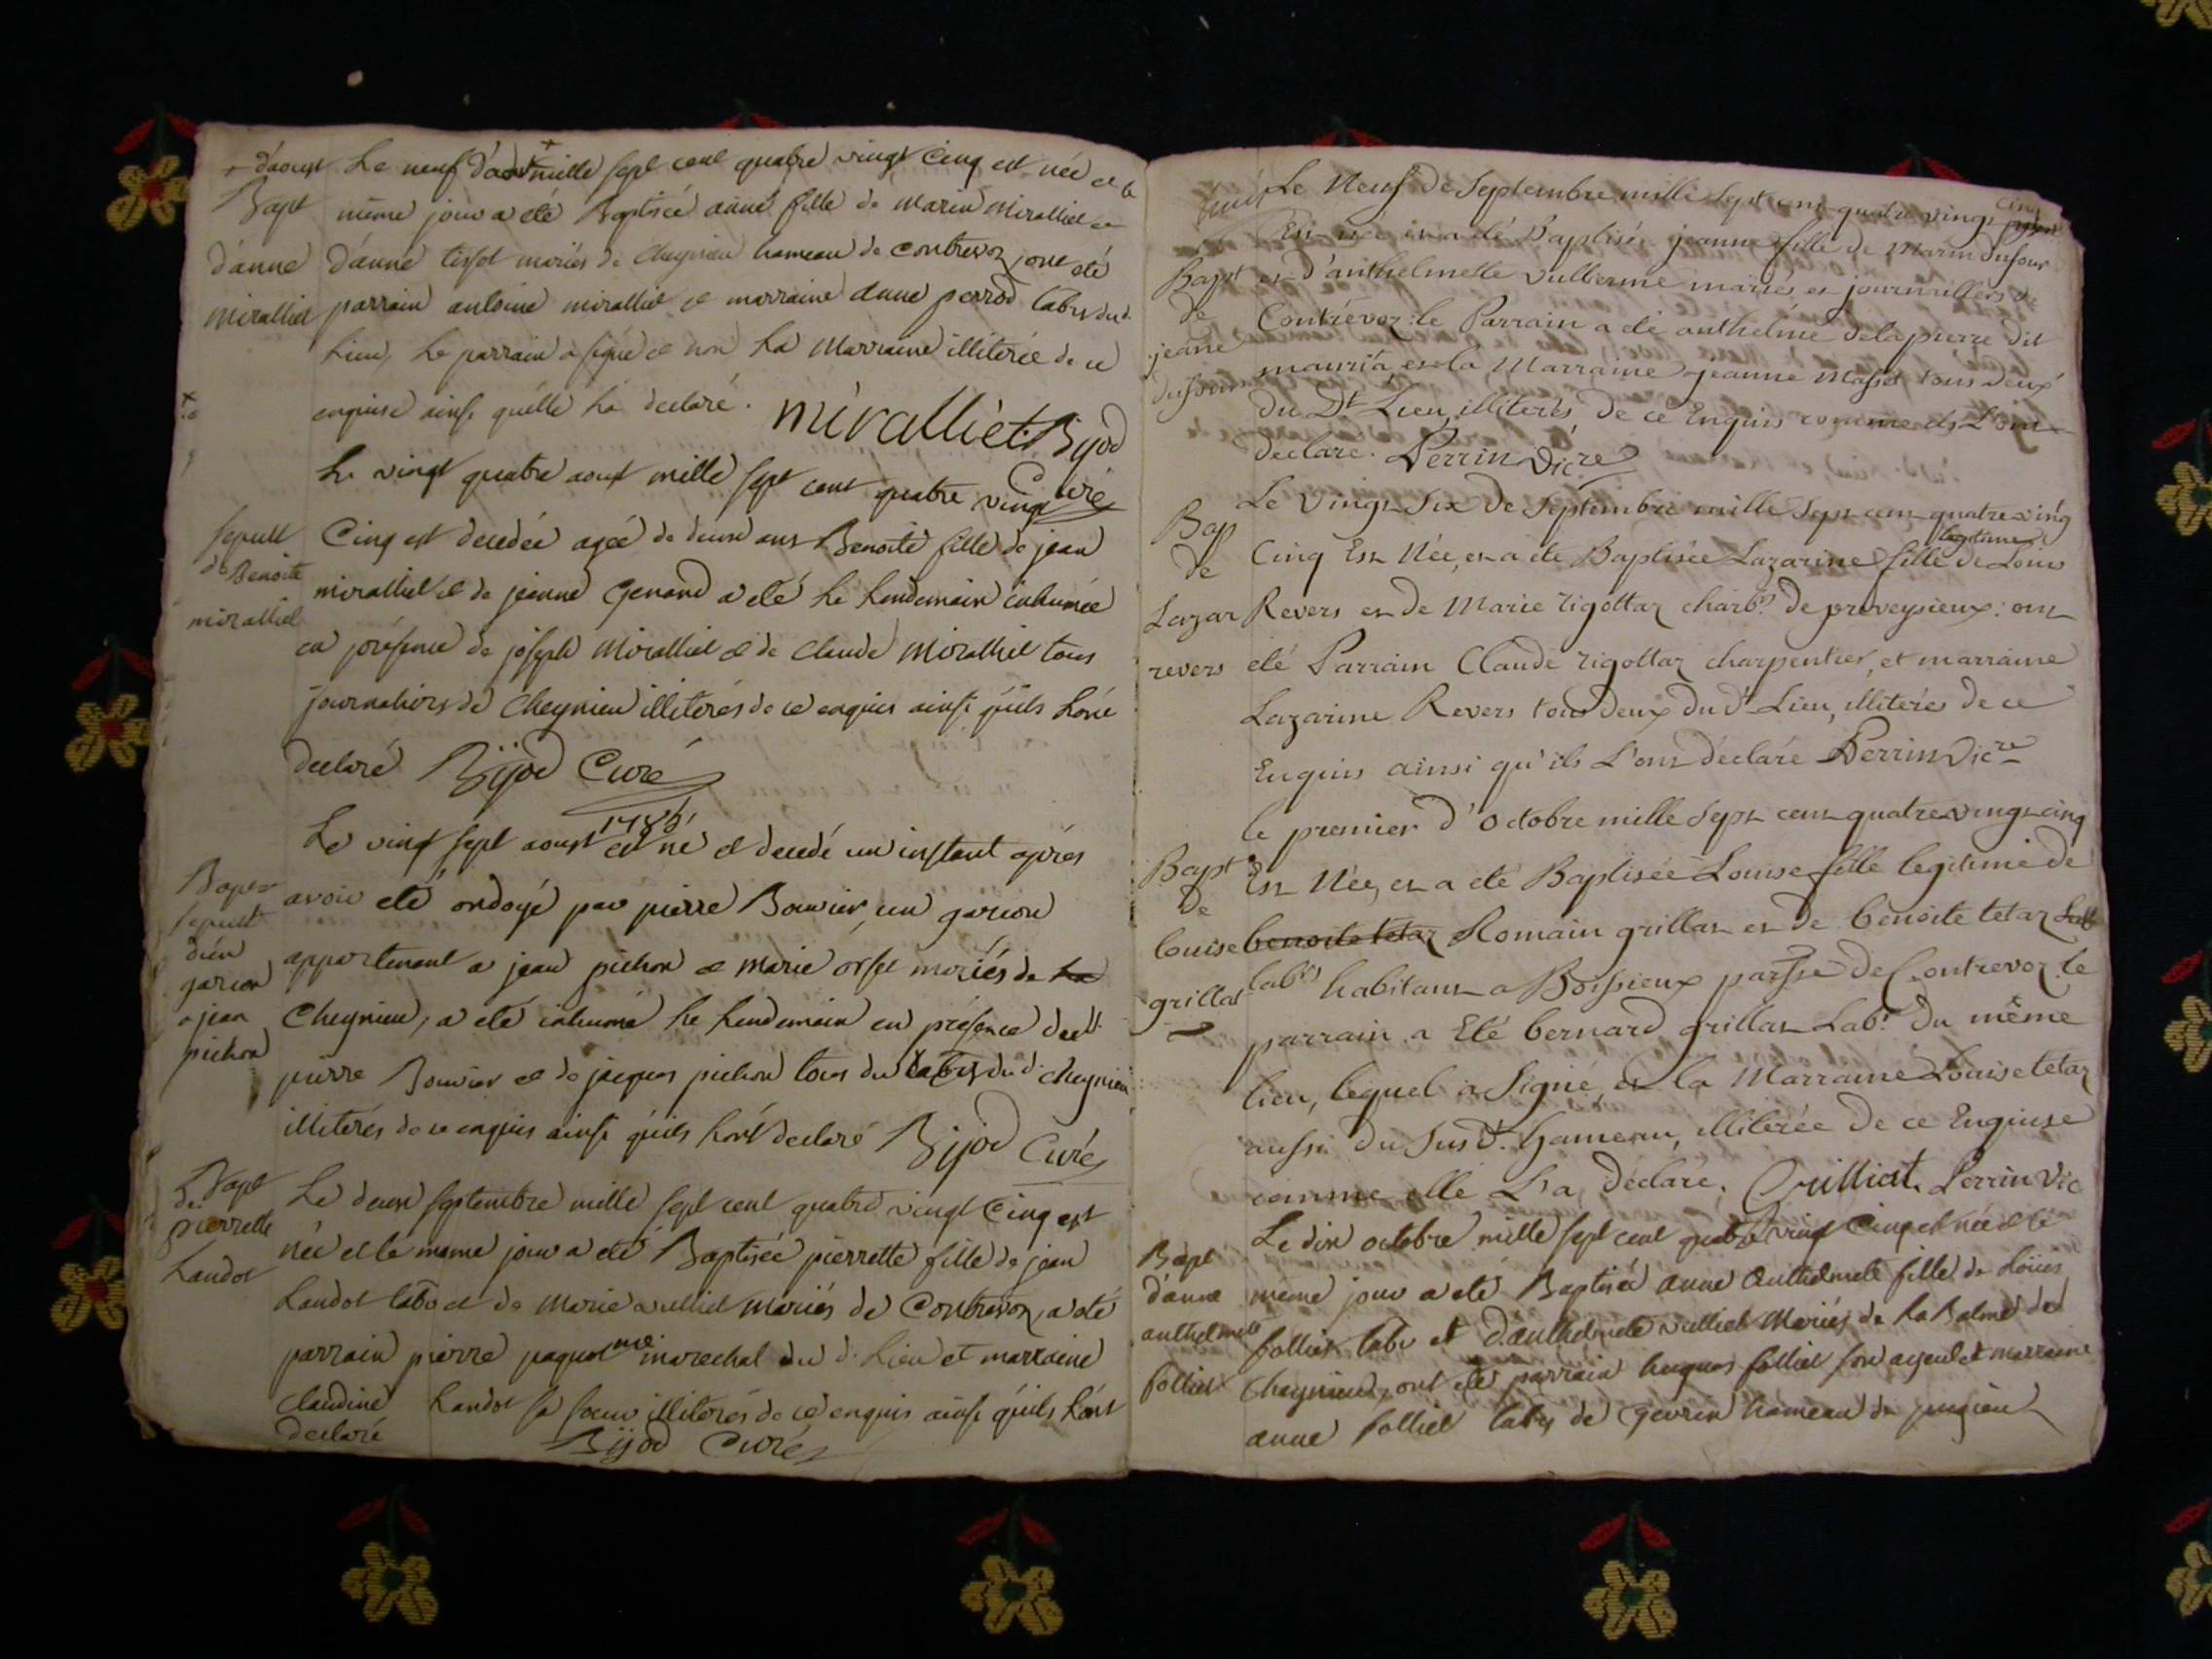 + d'aoust Le neuf d'aoust + mille sept cent quatre vingt Cinq est née et le
Bapt même jour a eté Baptisée anne fille de Marin Miralliet et
d'anne d'anne tisset mariés de Cheynieu hameau de Contrevoz, ont eté
Miralliet parrain antoine miralliet et marraine anne perrod labrs dud.
Lieu, Le parrain a signé et non La Marraine illiterée de ce
enquise ainsi quélle Lá declaré. Miralliet Bijod
Curé
Le vingt quatre aoust mille sept cent quatre vingt
sepult Cinq est decedée agée de deux ans Benoite fille de jean
de Benoite
miralliet miralliet et de jeanne Genand a eté Le Lendemain inhumée
en présence de joseph Miralliet et de Claude Miralliet tous
journaliers de Cheynieu illiterés de ce enquis ainsi quils Lónt
declaré Bijod Curé
Le vingt sept aoust 1785 est né et decedé un instant aprés
Bapt et avoir eté ondoyé par pierre Bouvier, un garcon
sepult
d'un appartenant a jean pichon et Marie orset mariés de
garcon
a jean Cheynieu, a eté inhumé Le Lendemain en présence dedt
pichon pierre Bouvier et de jacques pichon tous dud. Cheynieu
illiterés de ce enquis ainsi quils Lónt declaré Bijod Curé
Bapt Le deux septembre mille sept cent quatre vingt Cinq est
de
pierrette née et le même jour a eté Baptisée pierrette fille de jean
Landot Landot labr et de Marie vulliet mariés de Contrevoz, a eté
parrain pierre paquot me marechal du d. Lieu et marraine
Claudine Landot sa soeur illiterés de ce enquis ainsi quils Lónt
declaré Bijod Curé
Le Neuf de Septembre mille sept cent quatre vingt cinq
Est née et a été Baptisée jeanne fille de Marin dufour
Bapt et d'anthelmette Vullerme mariés et journalliers de
de Contrévoz: le Parrain a eté anthelme delapierre dit
jeanne mauria, et la Marraine jeanne Masset tous deux
dufour du Dt Lieu, illiterés de ce Enquis comme ils L'ont
declaré. Perrin Vicre
Le Vingt Six de Septembre mille Sept cent quatre vingt
Bap Cinq Est Née, et a eté Baptisée Lazarine fille legitime de Louis
de
Lazar Revers et de Marie rigottaz charbr de preveysieux: ont
revers eté Parrain Claude rigottaz charpentier, et marraine
Lazarine Revers tous deux du dt Lieu, illiterés de ce
Enquis ainsi qu'ils L'ont déclaré Perrin Vicre
le premier d'Octobre mille Sept cent quatre vingt cinq
Bapt Est Née, et a eté Baptisée Louise fille legitime de
de
louise benoite tetaz Romain grillat et de benoite tetaz
grillat labrs habitant a Boissieux parsse de Contrevoz. le
parrain a Eté bernard grillat Labr. du même
lieu, lequel a Signé, et la Marraine Louise tetaz
aussi du Susdt. hameau, illiterée de ce Enquise
comme elle L'a déclaré. Grilliat. Perrin Vic
Le dix octobre mille sept cent quatre vingt Cinq est née et le
Bapt
d'anne même jour a eté Baptisée anne Anthelmete fille de Loüis
anthelmete folliet labr et d'anthelmete vulliet Mariés de La Balme de
folliet Cheynieu, ont eté parrain hugues folliet son ayeul et marraine
anne folliet labrs de Gevrin hameau de pugieu